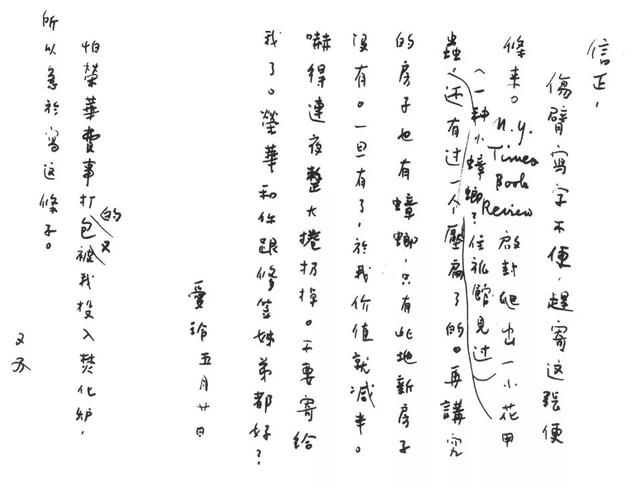 信正,
傷臂寫字不便,趕寄這張便
條来。N.Y. Times Book Review 啟封爬出一小花甲
(一种小蟑螂?住旅館見过)
蟲,还有过一个壓扁了的。再講究
的房子也有蟑螂,只有此地新房子
没有。一旦有了,於我价值就减半。
嚇得連夜整大捲扔掉。不要寄給
我了。榮華和你跟修笠姊弟都好?
愛玲五月廿日
怕榮華費事打包的又被我投入焚化炉,
所以急於寫這條子。
又及